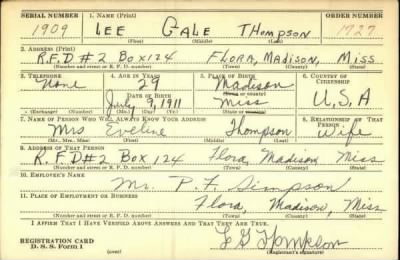 SERIAL NUMBER 1. NAME (Print) ORDER NUMBER
1909 LEE GALE THOMPSON 1727
(First) (Middle) (Last)
2. ADDRESS (Print)
R.F.D #2 BOX 124 FLORA, MADISON, MISS
(Number and street or R. F. D. number) (Town) (County) (State)
3. TELEPHONE 4. AGE IN YEARS 5. PLACE OF BIRTH 6. COUNTRY OF CITIZENSHIP
None 29 Madison
DATE OF BIRTH (Town or county)
July 9, 1911 Miss U.S.A
(Exchange) (Number) (Mo.) (Day) (Yr.) (State or country)
7. NAME OF PERSON WHO WILL ALWAYS KNOW YOUR ADDRESS 8. RELATIONSHIP OF THAT PERSON
Mrs Eveline Thompson Wife
(Mr., Mrs., Miss) (First) (Middle) (Last)
9. ADDRESS OF THAT PERSON
R.F.D#2 BOX 124 Flora, Madison Miss
(Number and street or R. F. D. number) (Town) (County) (State)
10. EMPLOYER'S NAME
Mr. P. F. Simpson
11. PLACE OF EMPLOYMENT OR BUSINESS
Flora, Madison, Miss
(Number and street or R. F. D. number) (Town) (County) (State)
I AFFIRM THAT I HAVE VERIFIED ABOVE ANSWERS AND THAT THEY ARE TRUE.
REGISTRATION CARD
D. S. S. Form 1 (over) (Registrant's signature)